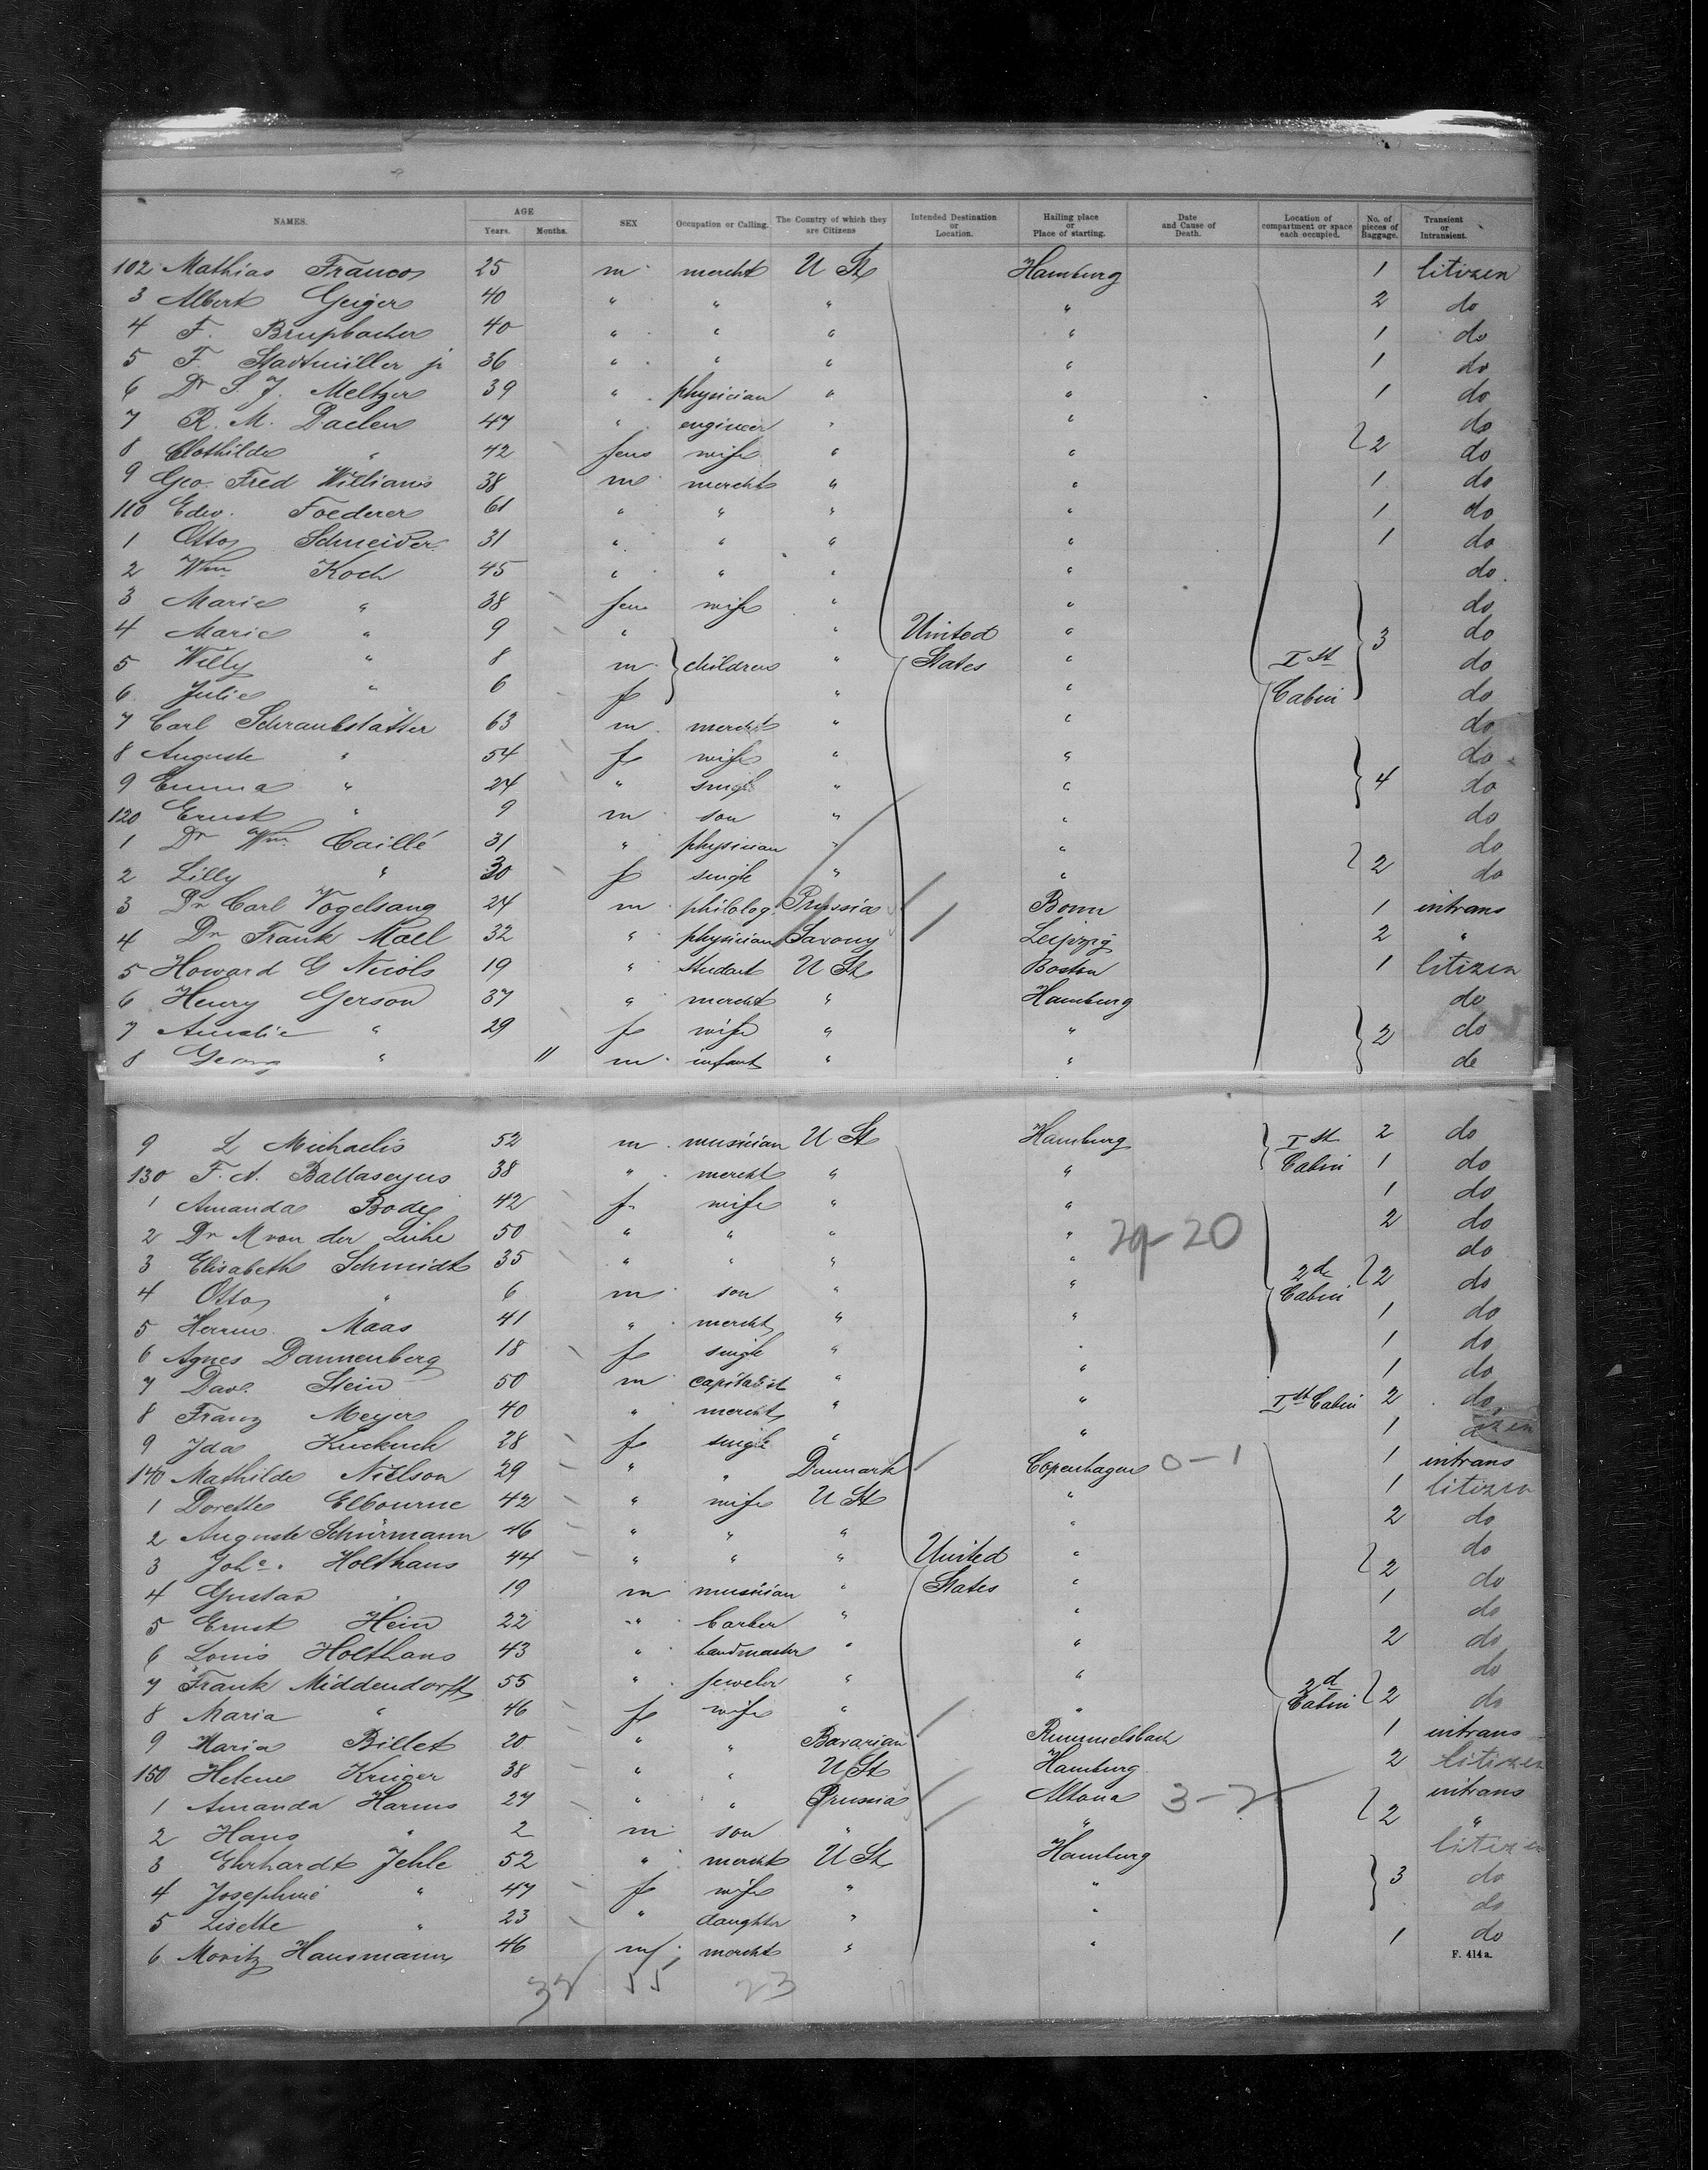 NAMES. AGE Years. Months. SEX Occupation or Calling. The Country of which they are Citizens Intended Destination or Location. Hailing place or Place of starting. Date and Cause of Death. Location of compartment or space each occupied. No. of pieces of Baggage. Transient or Intransient.
102 Mathias Francos 25 m mercht U St Hamburg 1 Citizen
3 Albert Geiger 40 " " " " 2 do
4 F. Brupbacher 40 " " " " 1 do
5 F. Stadtmüller jr 36 " " " " 1 do
6 Dr S J. Meltzer 39 " physician " " 1 do
7 R. M. Daelen 47 " engineer " " do
8 Clothilde " 42 fem wife " " 2 do
9 Geo. Fred Williams 38 m mercht " " 1 do
110 Edw. Foederer 61 " " " " 1 do
1 Otto Schneider 31 " " " " 1 do
2 Wm Koch 45 " " " " do
3 Marie " 38 fem wife " " do
4 Marie " 9 " " United " 3 do
5 Willy " 8 m children " States " Ist do
6 Julie " 6 f " " Cabin do
7 Carl Schraubstätter 63 m mercht " " do
8 Auguste " 54 f wife " " do
9 Emma " 24 " single " " 4 do
120 Ernst " 9 m son " " do
1 Dr Wm Caillé 31 " physician " " do
2 Lilly " 30 f single " " 2 do
3 Dr Carl Vogelsang 24 m philolog. Prussia Bonn 1 intrans
4 Dr Frank Mall 32 " physician Saxony Leipzig 2 "
5 Howard G Nicols 19 " student U St Boston 1 Citizen
6 Henry Gerson 37 " mercht " Hamburg do
7 Amalie " 29 f wife " " 2 do
8 Georg " 11 m infant " " do
9 L Michaelis 52 m musician U St Hamburg Ist 2 do
130 F. A. 38 " mercht " " Cabin 1 do
1 Amanda Bode 42 f wife " " 1 do
2 Dr M von der Lühe 50 " " " " 20 2 do
3 Elisabeth Schmidt 35 " " " " do
4 Otto " 6 m son " " 2d Cabin 2 do
5 Herm. Maas 41 " mercht " " 1 do
6 Agnes Dannenberg 18 f single " " 1 do
7 Dav. Stein 50 m capitalist " " 1 do
8 Franz Meyer 40 " mercht " " Ist Cabin 2 do
9 Ida Kuckuck 28 f single " " 1
140 Mathilde Nielson 29 " " Denmark Copenhagen 0-1 1 intrans
1 Dorette Elbourne 42 " wife U St " 1 Citizen
2 Auguste Schürmann 46 " " " " 2 do
3 Johe. Holthaus 44 " " " United " do
4 Gustav " 19 m musician " States " 2 do
5 Ernst Hein 22 " barber " " 1 do
6 Louis Holthaus 43 " bandmaster " " 2 do
7 Frank Middendorff 55 " jeweler " " 2d do
8 Maria " 46 f wife " " Cabin 2 do
9 Maria Billet 20 " " Bavarian Rummelsbach 1 intrans
150 Helene Krüger 38 " " U St Hamburg 2 Citizen
1 Amanda Harms 27 " " Prussia Altona 3-2 intrans
2 Hans " 2 m son " " 2 "
3 Ehrhardt Jehle 52 " mercht U St Hamburg Citizen
4 Josephine " 47 f wife " " 3 do
5 Lisette " 23 " daughter " " do
6 Moritz Hausmann 46 m mercht " " 1 do
F. 414a.
32 55 23